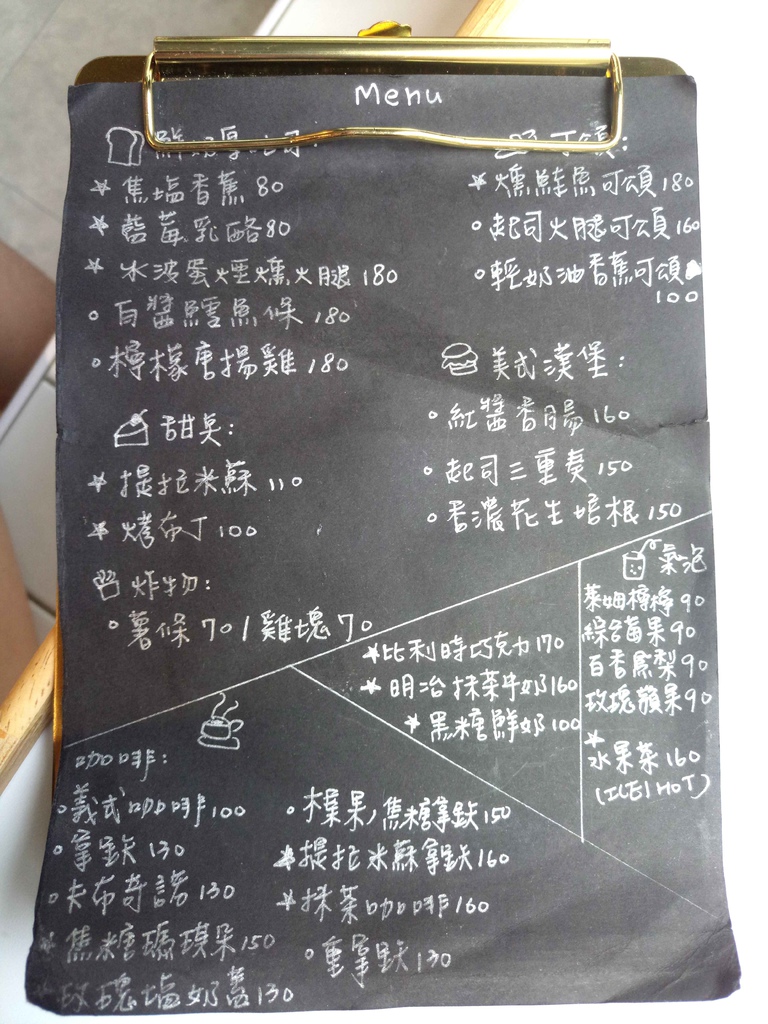 Menu
鮮奶厚吐司:
焦塩香蕉 80
藍莓乳酪 80
水波蛋煙燻火腿 180
白醬鱈魚條 180
檸檬唐揚雞 180
甜臭:
提拉米蘇 110
烤布丁 100
炸物:
薯條 70 / 雞塊 70
可頌:
燻鮭魚可頌 180
起司火腿可頌 160
輕奶油香蕉可頌
100
美式漢堡:
紅醬香腸 160
起司三重奏 150
香濃花生培根 150
比利時巧克力 170
明治抹茶牛奶 160
黑糖鮮奶 100
氣泡
萊姆檸檬 90
綜合莓果 90
百香鳳梨 90
玫瑰蘋果 90
水果茶 160
(ICE/HOT)
咖啡:
義式咖啡 100
拿鉄 130
卡布奇諾 130
焦糖瑪琪朵 150
玫瑰塩奶蓋 130
榛果/焦糖拿鉄 150
提拉米蘇拿鉄 160
抹茶咖啡 160
重拿鉄 130